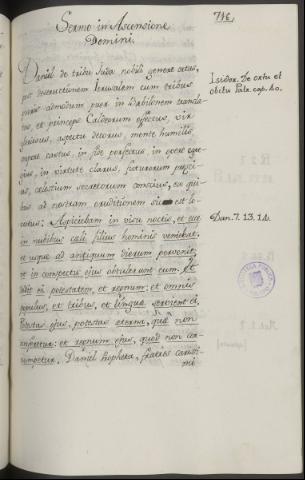 716.
Sermo in Ascensione
Domini.
Daniel de tribu Juda nobili genere ortus,
post destructionem Jerusalem cum tribus
pueris admodum puer in Babilonem transla-
tus, et princeps Caldeorum effectus, vir
gloriosus, aspectu decorus, mente humilis,
corpore castus, in fide perfectus, in opere egre-
gius, in virtute clarus, futurorum præsci-
us, cælestium secretorum conscius, ea qui-
tus ad nostram eruditionem est lo-
cutus: Aspiciebam in visu noctis, et ecce
in nubibus cæli filius hominis veniebat,
et usque ad antiquum dierum pervenit,
et in conspectu ejus obtulerunt eum. Et
dedit ei potestatem, et regnum: et omnes
populus, et tribus, et linguæ servient ei.
Potestas ejus, potestas æterna, quæ non
auferetur: et regnum ejus, quod non cor-
rumpetur. Daniel Propheta, fratres carissi-
mi
Isidor. De ortu et
obitu Patr. cap. 40.
Dan. 7. 13. 14.